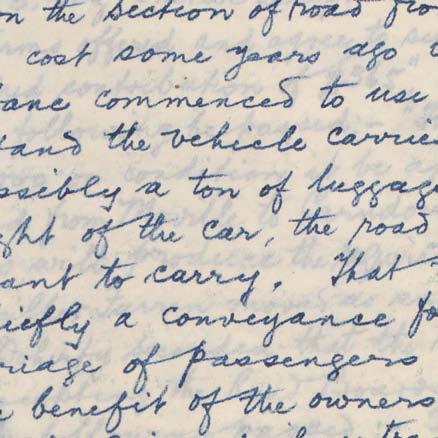 n the section of road fro
cost some years ago
ane commenced to use
tand the vehicle carrie
ssibly a ton of luggag
ght of the car, the road
ant to carry. That
iefly a conveyance fo
riage of passengers
e benefit of the owners